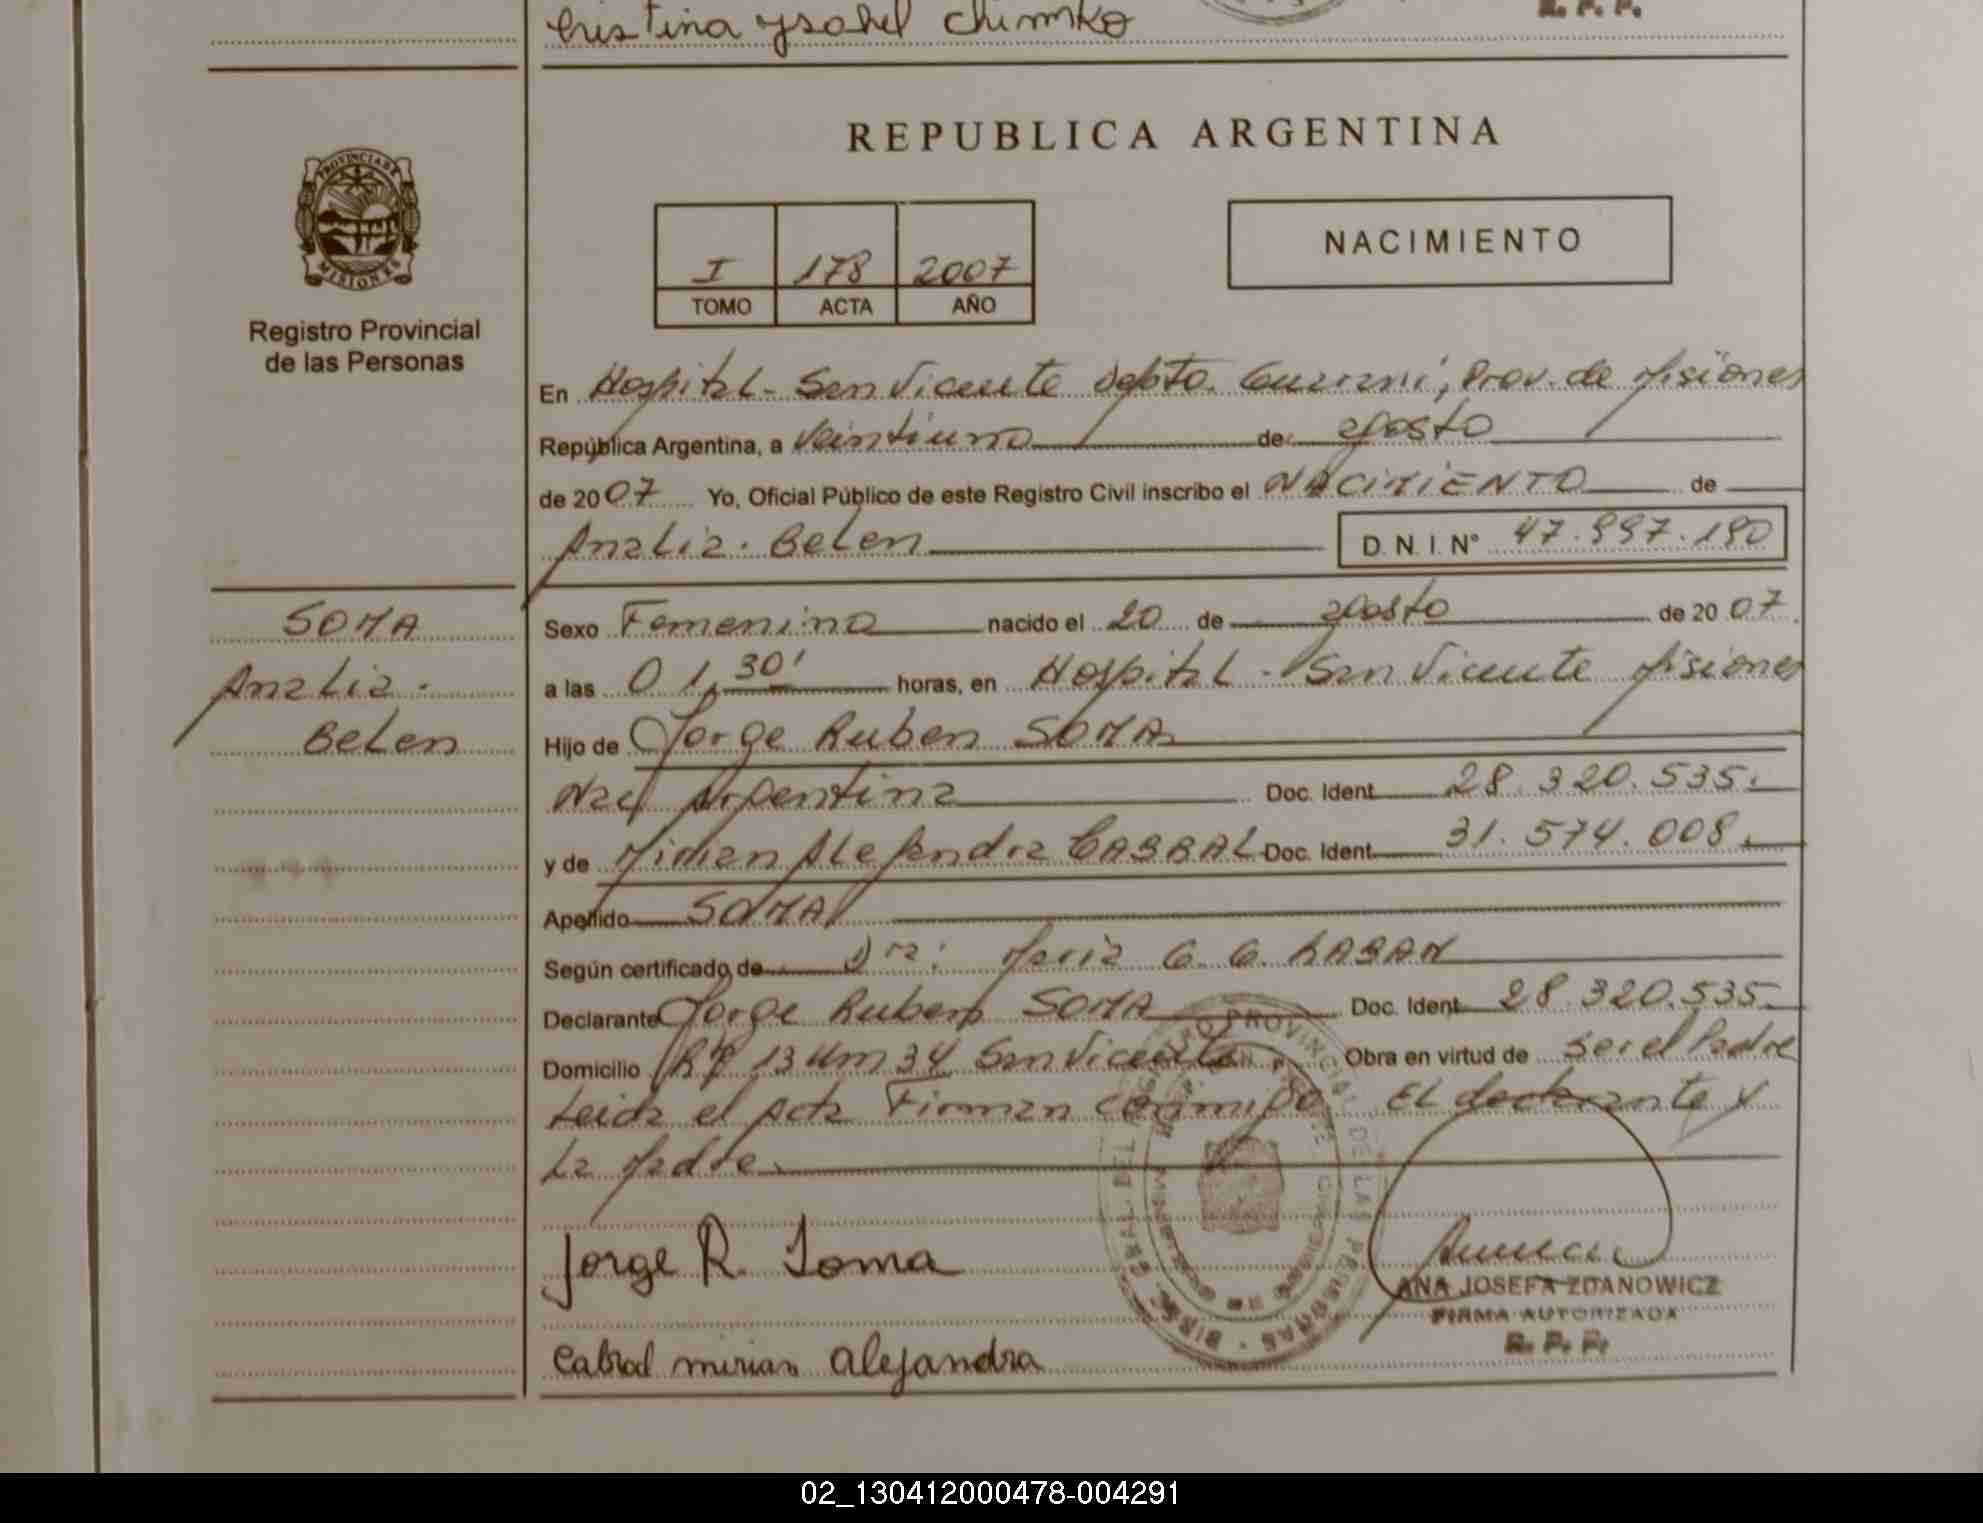 Cristina Ysabel Chimko
R. P. P.
PROVINCIA DE
MISIONES
Registro Provincial
de las Personas
REPUBLICA ARGENTINA
I 178 2007
TOMO ACTA AÑO
NACIMIENTO
En Hospital - San Vicente Depto. Guarani, Prov. de Misiones
República Argentina, a Veintiuno de agosto
de 2007 Yo, Oficial Público de este Registro Civil inscribo el NACIMIENTO de
Analia. Belen D. N. I. Nº 47.997.190
SOMA
Analia.
Belen
Sexo Femenino nacido el 20 de agosto de 2007.
a las 01,30' horas, en Hospital - San Vicente Misiones
Hijo de Jorge Ruben SOMA
Nac Argentina Doc. Ident. 28.320.535.
y de Mirian Alejandra CABRAL Doc. Ident. 31.574.008.
Apellido SOMA
Según certificado de Dra: Maria G. G. RABAN
Declarante Jorge Ruben SOMA Doc. Ident. 28.320.535.
Domicilio RP 13 Km 34 San Vicente Obra en virtud de ser el Padre
Leida el Acta Firman conmigo El declarante y
La Madre
Jorge R. Soma
Cabral mirian alejandra
ANA JOSEFA ZDANOWICZ
FIRMA AUTORIZADA
R. P. P.
02_130412000478-004291